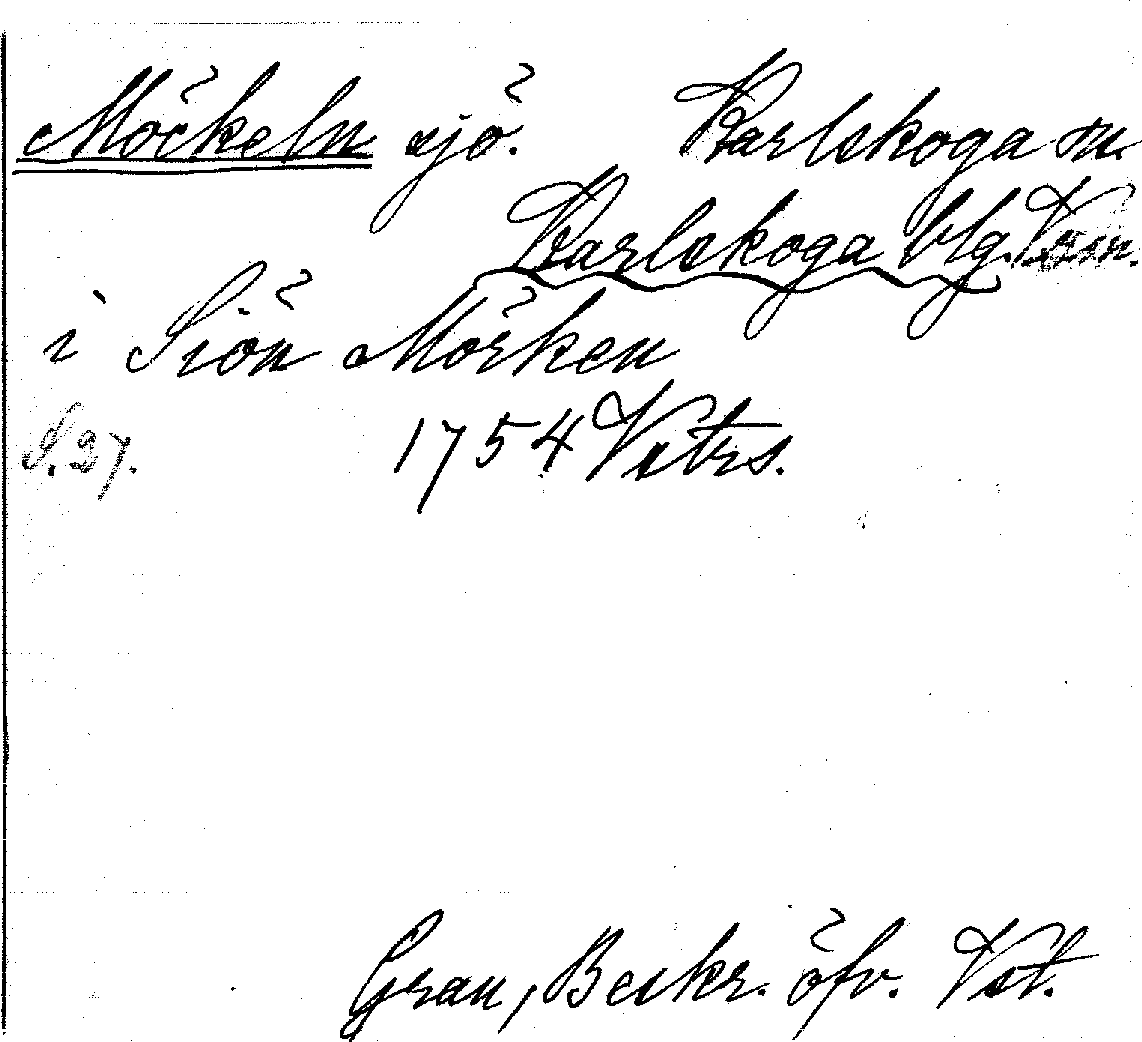 Möckeln sjö. Karlskoga sn.
Karlskoga blg. Vrm.
i Siön Mörken
S. 27. 1754 Vstrs.
Grau, Beskr. öfv. Vst.